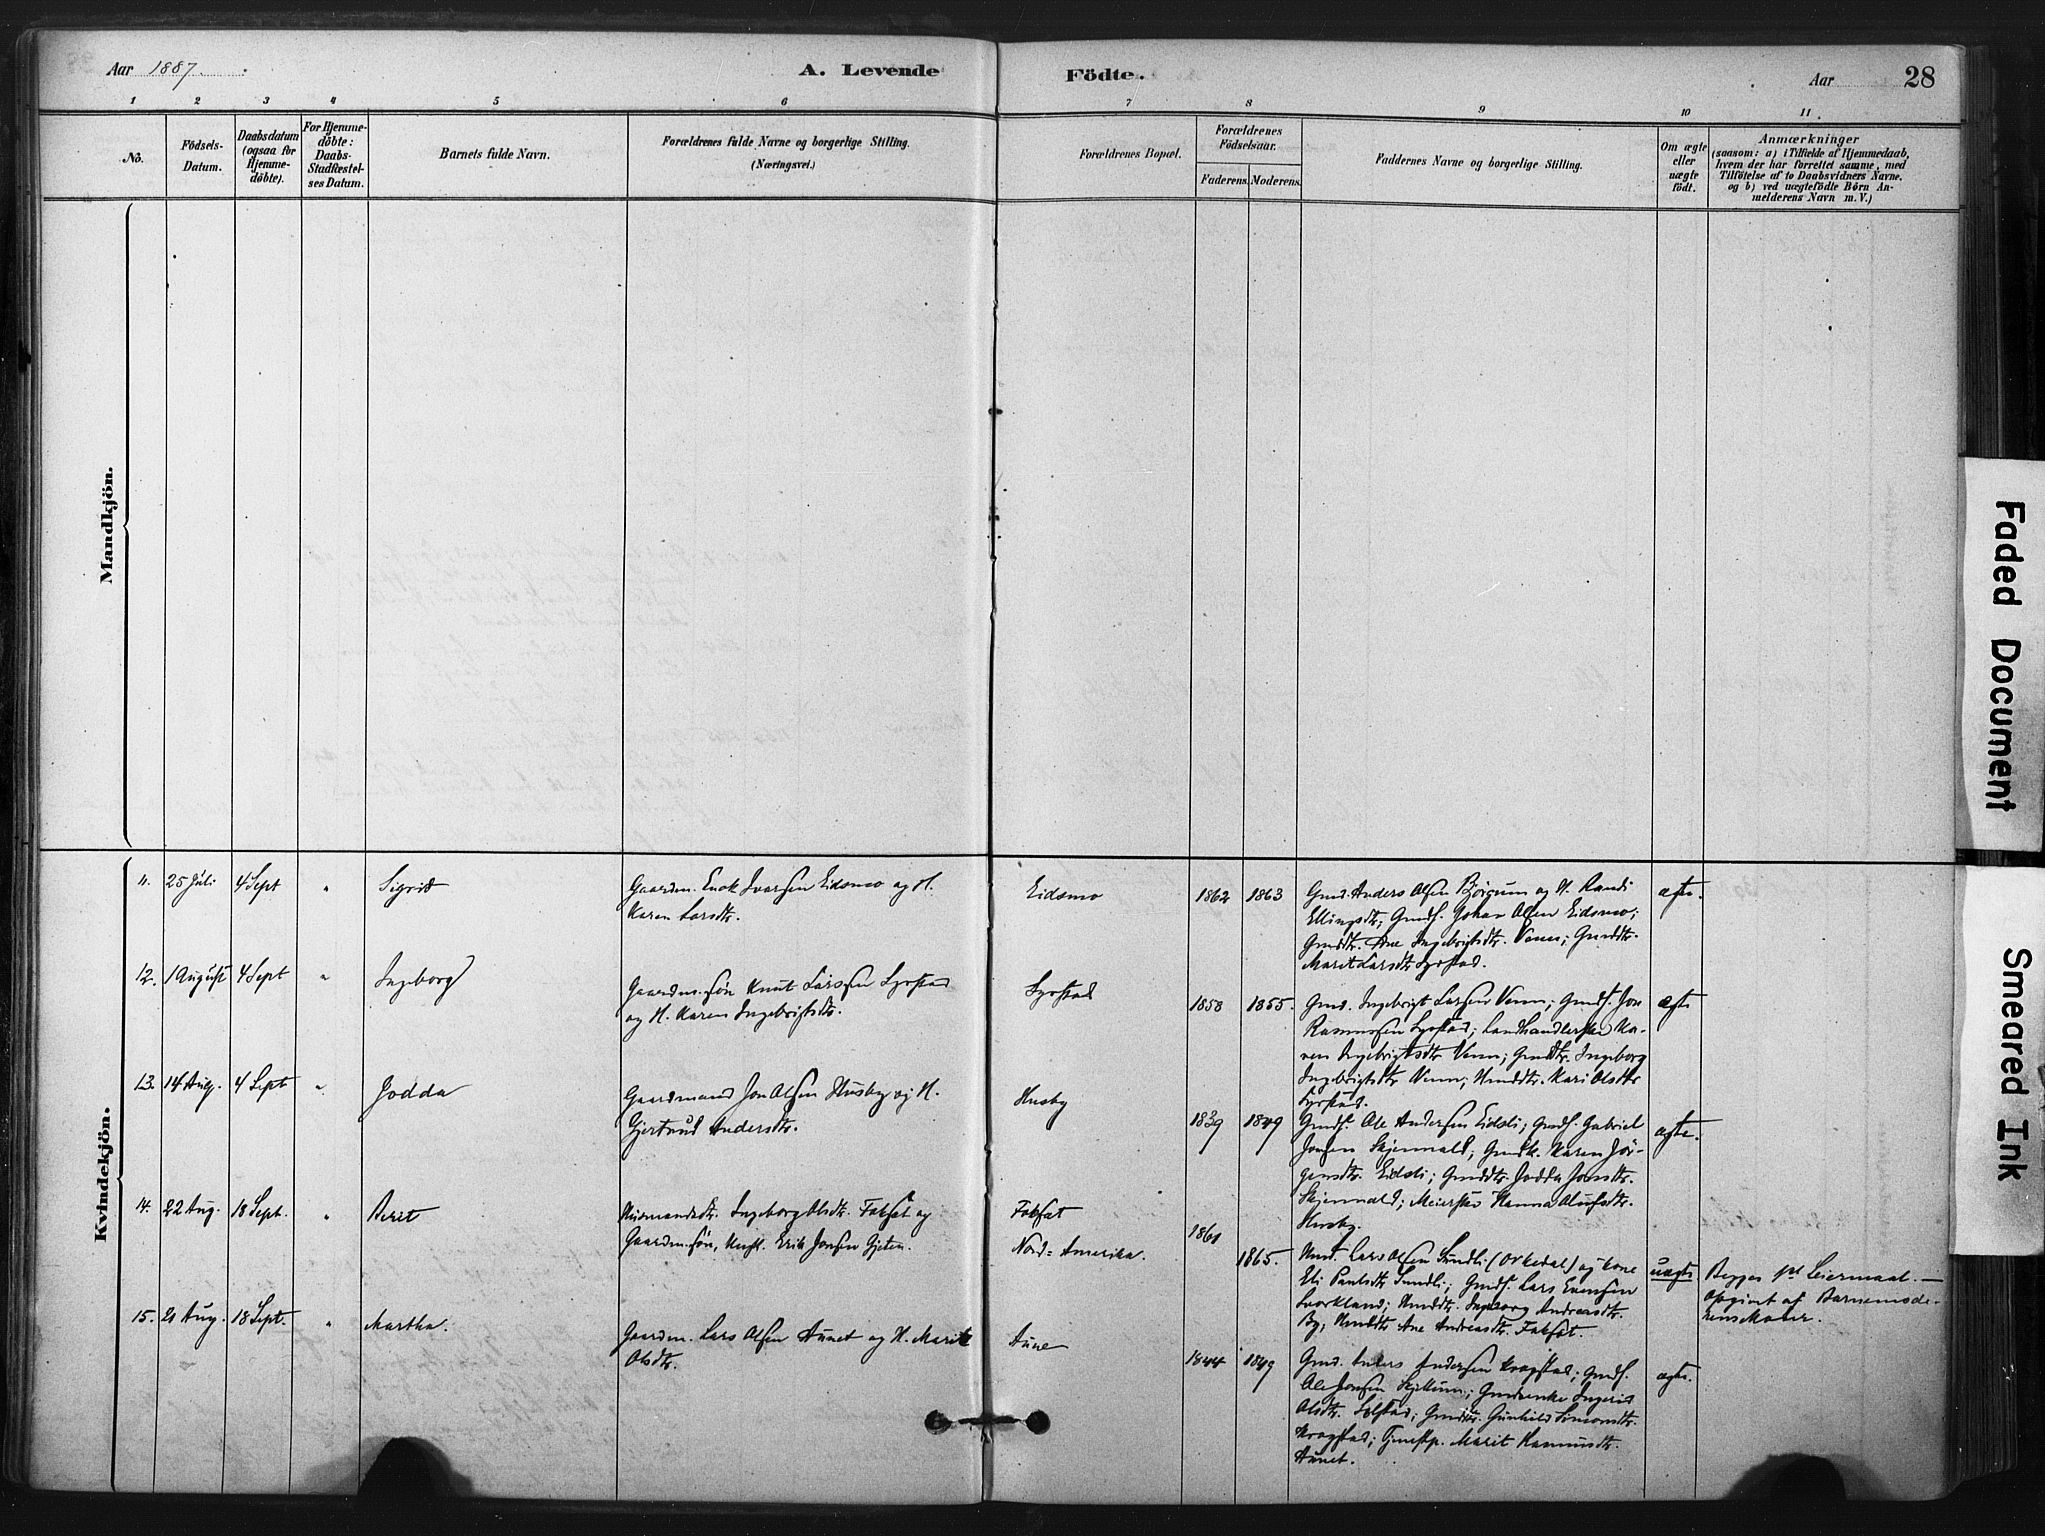 Aar 1887.
A. Levende Födte.
Aar
28
1 2 3 4 5 6 7 8 9 10 11
No.
Födsels-
Datum.
Daabsdatum
(ogsaa for
Hjemme-
döbte).
For Hjemme-
döbte:
Daabs-
Stadfæstel-
ses Datum.
Barnets fulde Navn.
Forældrenes fulde Navne og borgerlige Stilling.
(Næringsvei.)
Forældrenes Bopæl.
Forældrenes
Födselsaar.
Faderens. Moderens.
Faddernes Navne og borgerlige Stilling.
Om ægte
eller
uægte
födt.
Anmærkninger
(saasom: a) i Tilfælde af Hjemmedaab,
hvem der har forrettet samme, med
Tilföielse af to Daabsvidners Navne.
og b) ved uægtefödte Börn An-
melderens Navn m. V.)
Mandkjön.
Kvindekjön.
11. 25 Juli 4 Sept " Sigrid
Gaardm. Enok Ivarsen Eidsmo og H.
Karen Larsdtr.
Eidsmo
1862 1863
Gmd. Anders Olsen Björgum og H. Randi
Ellingsdtr; Gmds. Johan Olsen Eidsmo;
Gmddtr. Ane Ingebrigtsdtr. Venn; Gmddtr.
Marit Larsdtr Syrstad.
ægte.
12. 1 August 4 Sept " Ingeborg
Gaardm.sön Knut Larssen Syrstad
og H. Karen Ingebrigtsdtr.
Syrstad
1858 1855.
Gmd. Ingebrigt Larsen Venn; Gmds. Jon
Rasmussen Syrstad; Landhandlerske Ka-
ren Ingebrigtsdtr Venn; Gmddtr. Ingeborg
Ingebrigtsdtr Venn; Hmddtr. Kari Olsdtr
Syrstad.
ægte
13. 14 Aug. 4 Sept " Jodda
Gaardmand Jon Olsen Husby og H.
Gjertrud Andersdtr.
Husby
1839 1849
Gmds. Ole Andersen Eidsli; Gmds. Gabriel
Jonsen Skjenald; Gmdk. Karen Jör-
gensdtr. Eidsli; Gmddtr. Jodda Jonsdtr.
Skjenald; Meierske Hanna Olufsdtr.
Husby.
ægte.
14. 22 Aug. 18 Sept. " Berit
Husmandsdtr. Ingeborg Olsdtr. Foksæt og
Gaardm.sön, Ungk. Erik Jonsen Gjeten.
Foksæt
Nord-Amerika.
1861
1865.
Hmd. Lars Olsen Sundli (Orkedal) og Kone
Eli Paulsdtr Sundli; Gmds. Lars Evensen
Svorkland; Hmddtr. Ingeborg Andreasdtr.
By; Hmddtr Ane Andreasdtr. Foksæt.
uægte
Begges 1ste Leiermaal. —
Opgivet af Barnemode-
rens Moder.
15. 21 Aug. 18 Sept. " Martha.
Gaardm. Lars Olsen Aunet og H. Marit
Olsdtr.
Aune
1844 1849
Gmd. Anders Andersen Kragstad; Gmds.
Ole Jonsen Skjetlum; Gmdenke Ingerid
Olsdtr. Solstad; Gmddtr. Gunhild Simonsdtr.
Kragstad; Tjenestp. Marit Rasmusdtr.
Aunet.
ægte.
Faded Document
Smeared Ink